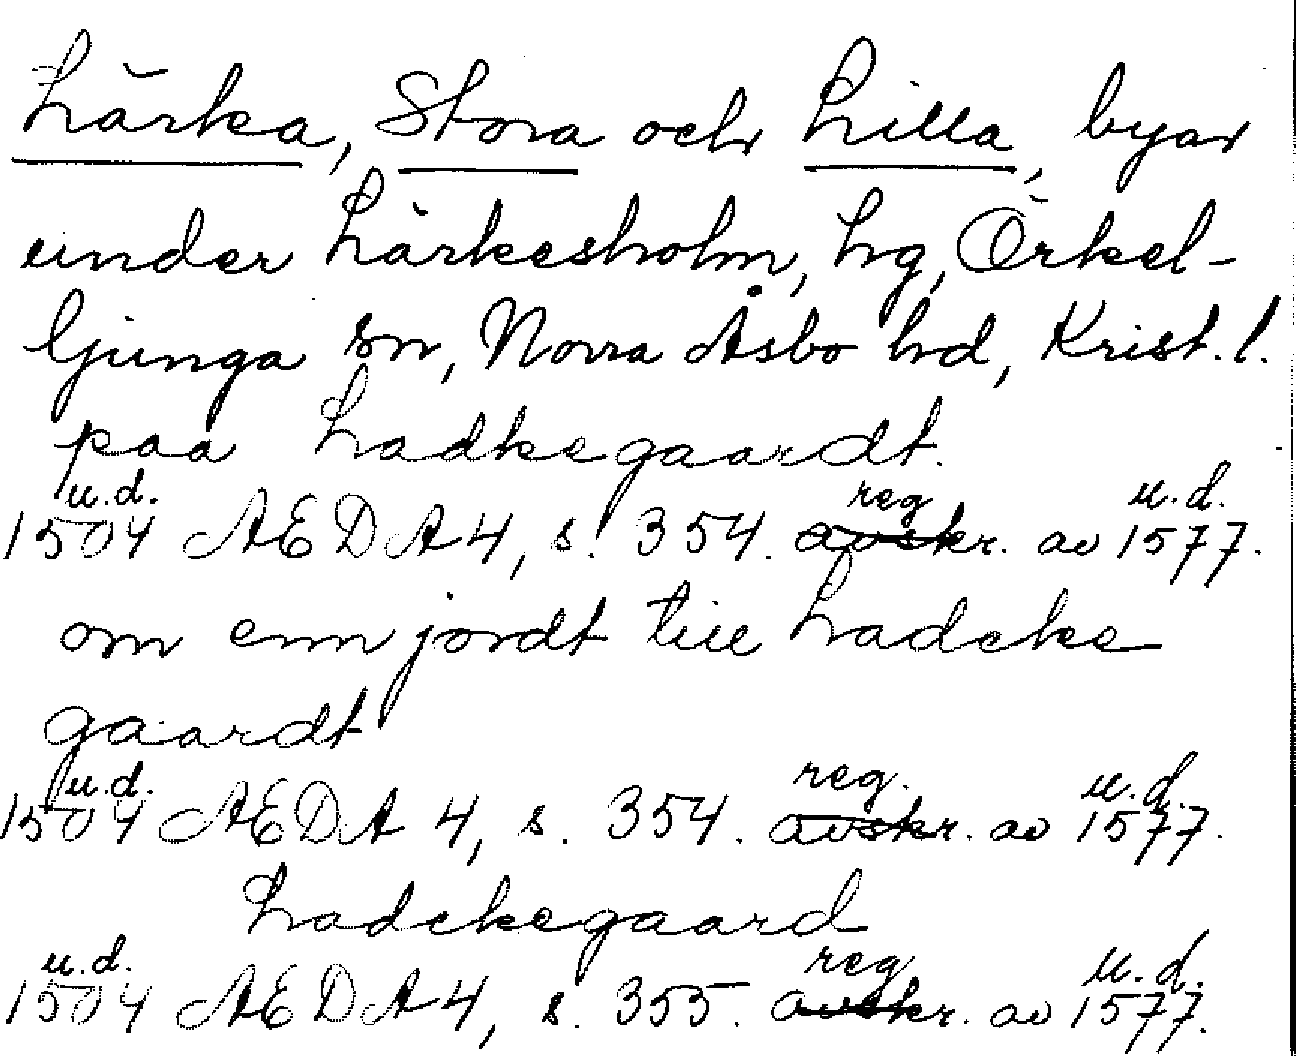 Lärka, Stora och Lilla, byar
under Lärkesholm, hg, Örkel-
ljunga sn, Norra Åsbo hd, Krist. l.
paa Ladkegaardt.
u.d. reg u.d.
1504 AEDA 4, s. 354. avskr. av 1577.
om enn jordt till Ladcke
gaardt
u.d. reg. u.d.
1504 AEDA 4, s. 354. avskr. av 1577.
Ladckegaard
u.d. reg u.d.
1504 AEDA 4, s. 355. avskr. av 1577.